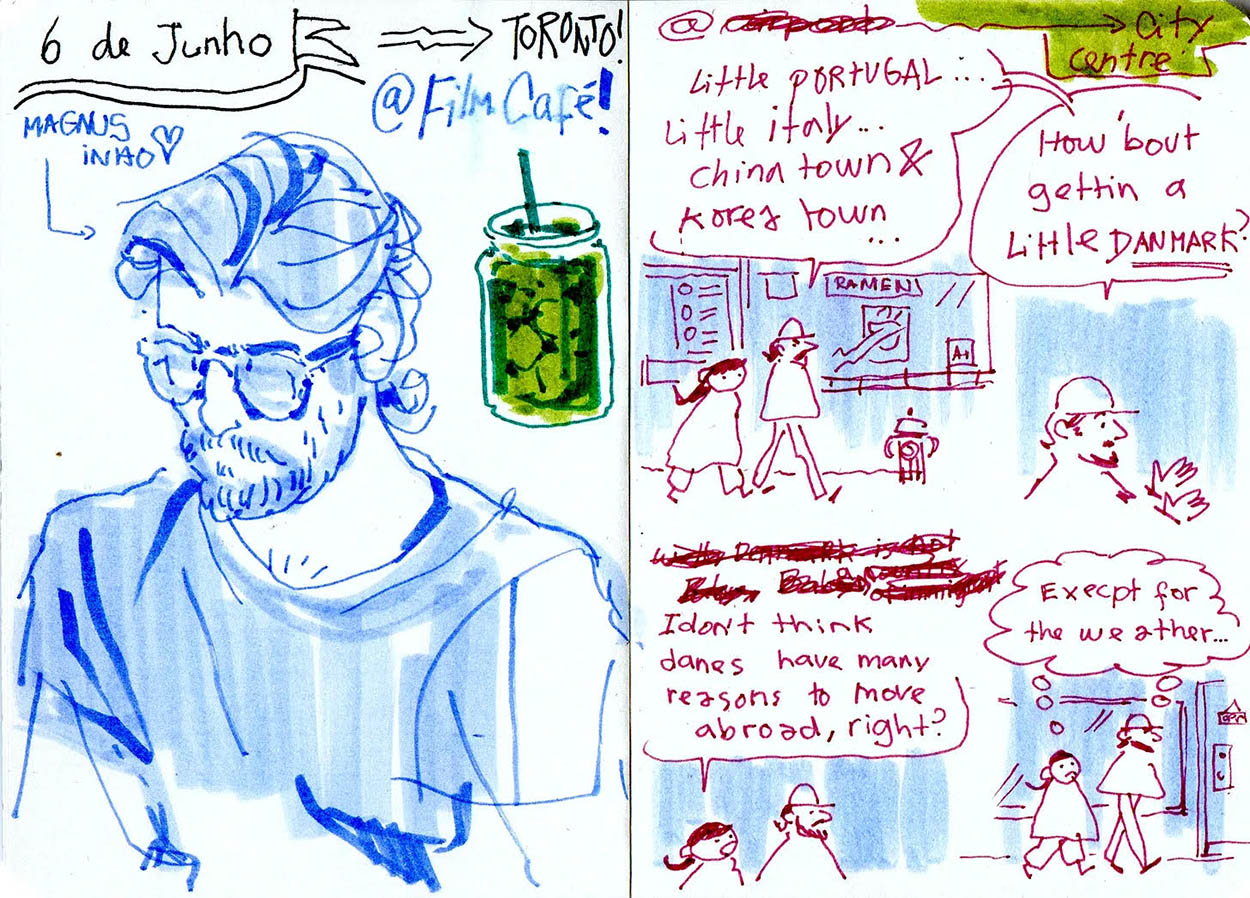 6 de Junho
TORONTO!
@Film Café!
MAGNUS
INHO
@ airport
City
centre
Little PORTUGAL...
Little italy...
china town &
Korea town
...
How 'bout
gettin a
Little DANMARK?
RAMEN
A+
I don't think
danes have many
reasons to move
abroad, right?
Execpt for
the weather...
OPEN